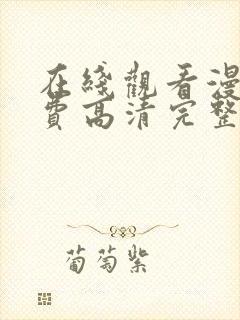 在綫觀看漫
費高清完整
葡萄紫